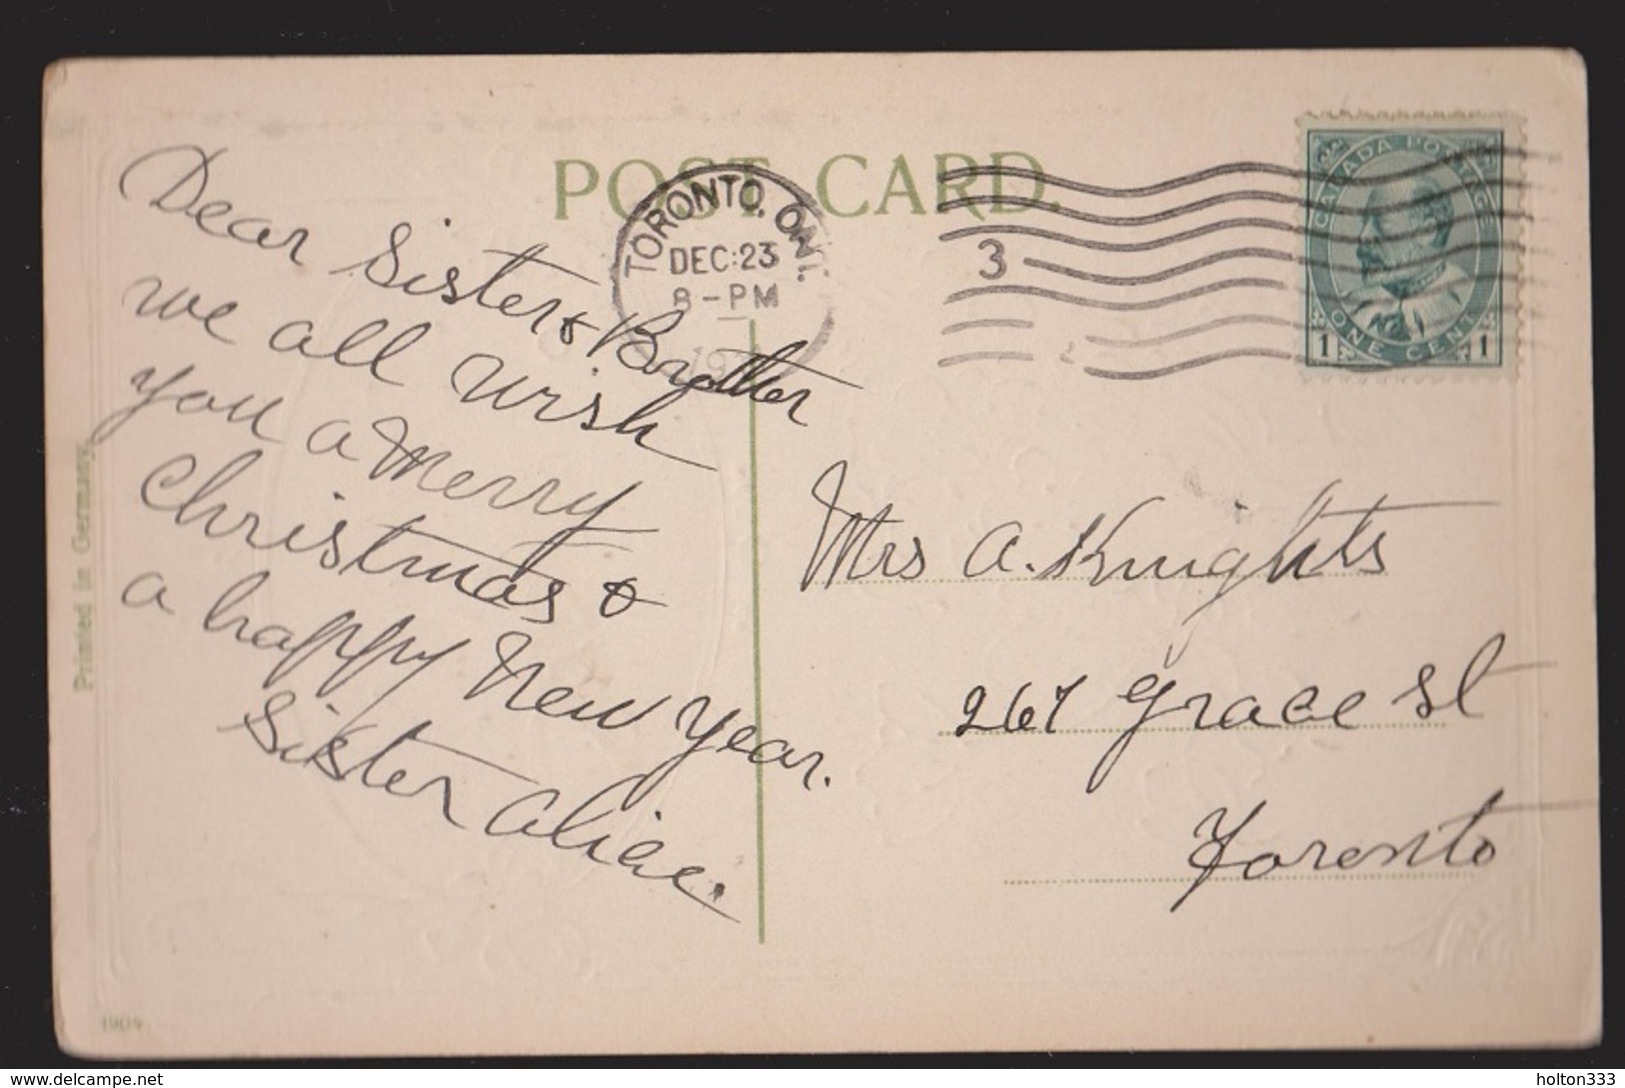 POST CARD.
TORONTO, ONT.
DEC:23
8-PM
19
3
CANADA POSTAGE
1 ONE CENT 1
Dear Sister & Brother
we all wish
you a Merry
Christmas &
a happy New Year.
Sister Alice.
Mrs A. Knights
267 Grace St
Toronto
Printed in Germany
1904
www.delcampe.net
holton333